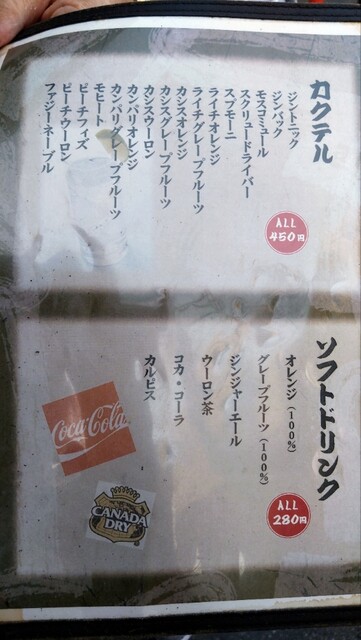 カクテル
ジントニック
ジンバック
モスコミュール
スクリュードライバー
スプモーニ
ライチオレンジ
ライチグレープフルーツ
カシスオレンジ
カシスグレープフルーツ
カシスウーロン
カンパリオレンジ
カンパリグレープフルーツ
モヒート
ピーチフィズ
ピーチウーロン
ファジーネーブル
ALL
450円
ソフトドリンク
オレンジ(100%)
グレープフルーツ(100%)
ジンジャーエール
ウーロン茶
コカ・コーラ
カルピス
ALL
280円
Coca-Cola
CANADA
DRY